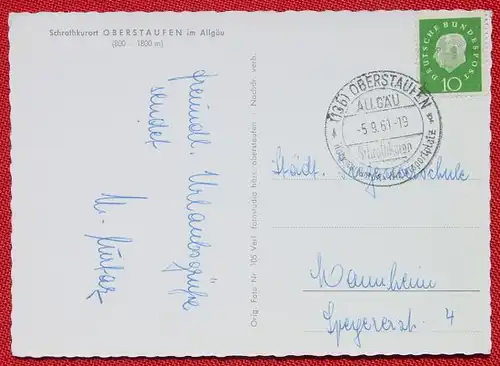 Schrothkurort OBERSTAUFEN im Allgäu
(800 - 1800 m)
freundl. Urlaubsgrüße
sendet
Orig. Foto Nr. 105 Verl. fotostudio hbs. oberstaufen · Nachdr. verb.
DEUTSCHE BUNDESPOST
10
(13b) OBERSTAUFEN
ALLGÄU
-5.9.61-19
Schrothkuren
Städt.
Mannheim
Speyererstr. 4